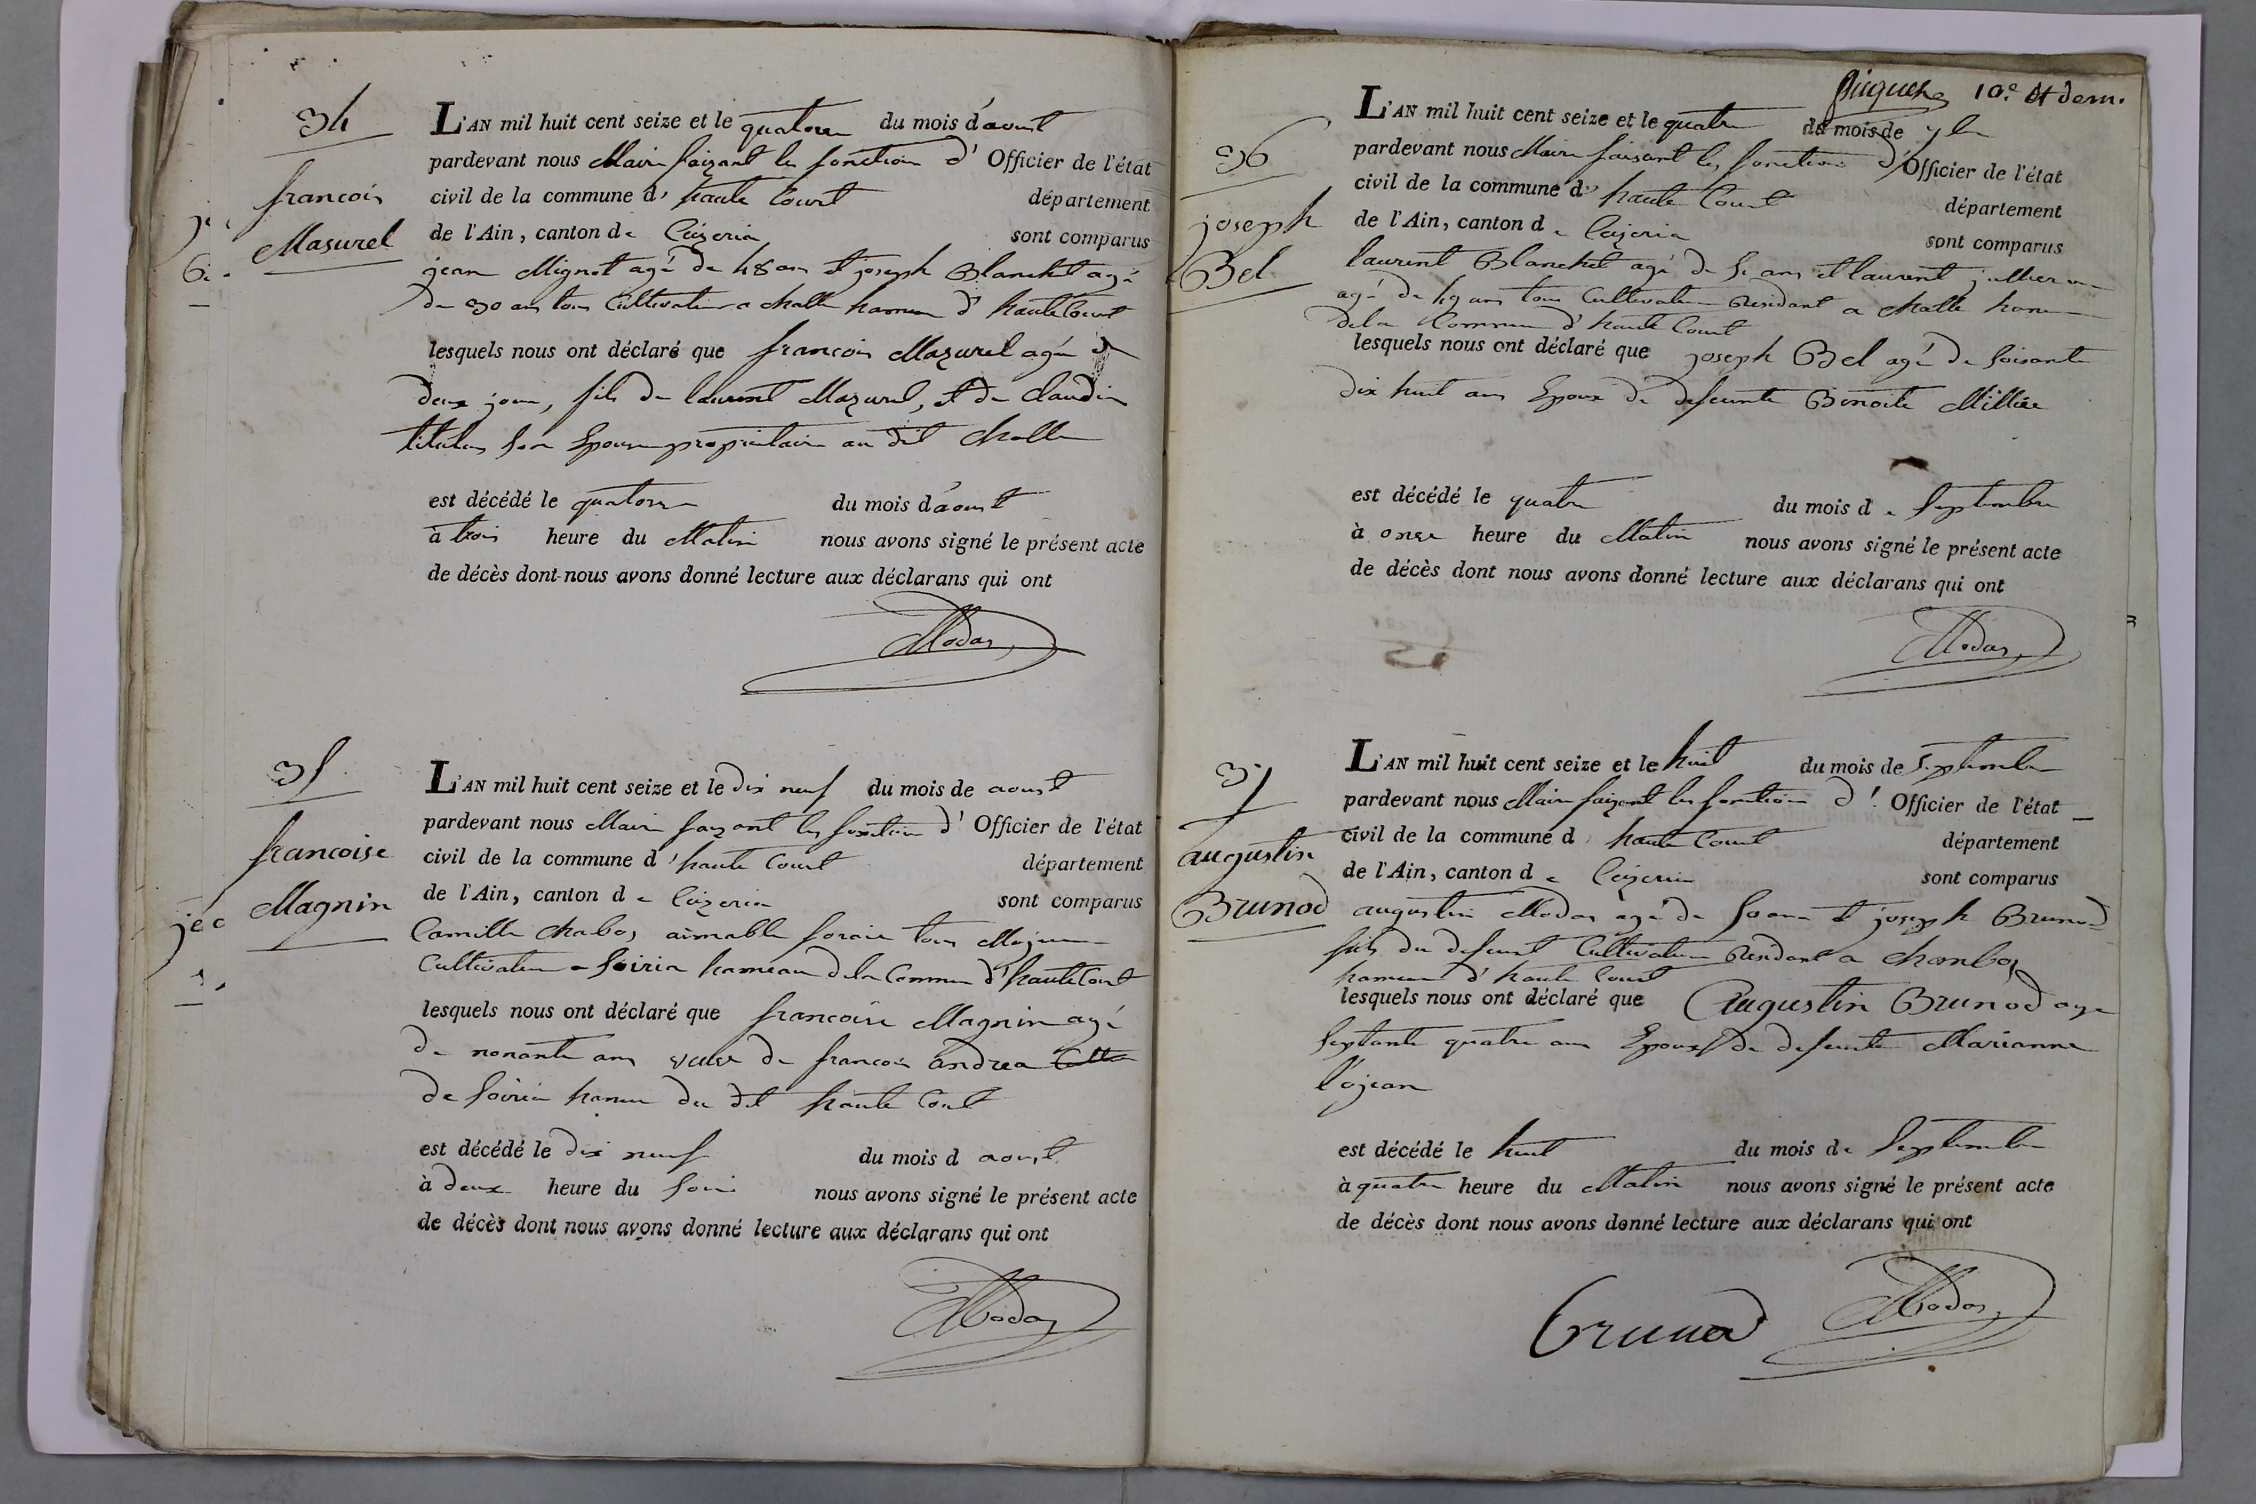 34
francois
Masurel
L'AN mil huit cent seize et le quatorze du mois d'aoust
pardevant nous Maire faizant les fonction d' Officier de l'état
civil de la commune d' haute Court département
de l'Ain, canton de Ceizeria sont comparus
jean Mignot agé de 48 ans et joseph Blanchet agé
de 30 ans tous Cultivateur a challe hameau d' haute Court
lesquels nous ont déclaré que francois Mazurel agée de
deux jour, fils de laurent Mazurel, et de claudine
son Epouse propriétaire au dit challe
est décédé le quatorze du mois d'aoust
à trois heure du Matin nous avons signé le présent acte
de décès dont nous avons donné lecture aux déclarans qui ont
Modas
35
francoise
Magnin
L'AN mil huit cent seize et le dix neuf du mois de aoust
pardevant nous Maire faizant les fonction d' Officier de l'état
civil de la commune d' haute Court département
de l'Ain, canton de Ceizeria sont comparus
Camille Chabos aimable forain tous Majeur
Cultivateur a Soiria hameau de la Commune d' haute Court
lesquels nous ont déclaré que francoise Magnin agé
de nonante ans veuve de francois andrea
de Soiria hameau du dit haute Court
est décédé le dix neuf du mois d aoust
à deux heure du Soir nous avons signé le présent acte
de décès dont nous avons donné lecture aux déclarans qui ont
Modas
10.e et dern.
36
joseph
Bel
L'AN mil huit cent seize et le quatre du mois de 7bre
pardevant nous Maire faisant les fonction d' Officier de l'état
civil de la commune d' haute Court département
de l'Ain, canton de Ceizeria sont comparus
laurent Blanchet agé de 51 ans et laurent
agé de 49 ans tous Cultivateur Residant a challe hameau
de la Commune d' haute Court
lesquels nous ont déclaré que joseph Bel agé de soisante
dix huit ans Epoux de defeunte Benoite Milliée
est décédé le quatre du mois de Septembre
à onze heure du Matin nous avons signé le présent acte
de décès dont nous avons donné lecture aux déclarans qui ont
Modas
37
augustin
Brunod
L'AN mil huit cent seize et le huit du mois de septembre
pardevant nous Maire faizant les fonction d' Officier de l'état
civil de la commune d' haute Court département
de l'Ain, canton de Ceizeria sont comparus
augustin Modas agé de 50 ans et joseph Brunod
fils du defeunt Cultivateur Residant a chambos
hameau d' haute Court
lesquels nous ont déclaré que Augustin Brunod age
septante quatre ans Epoux de defeunte Marianne
l'ojean
est décédé le huit du mois de Septembre
à quatre heure du Matin nous avons signé le présent acte
de décès dont nous avons donné lecture aux déclarans qui ont
Brunod Modas